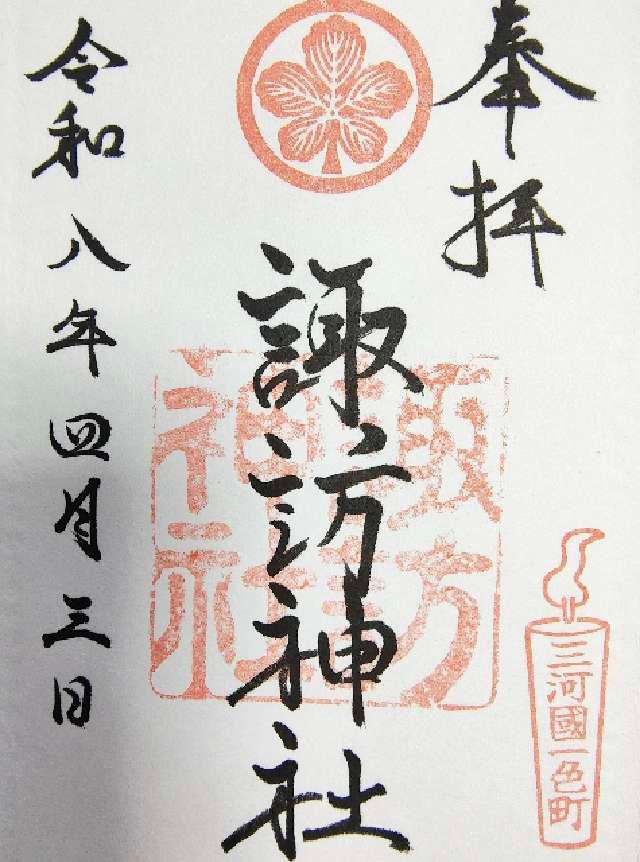 奉拝
諏訪神社
三河國一色町
令和八年四月三日